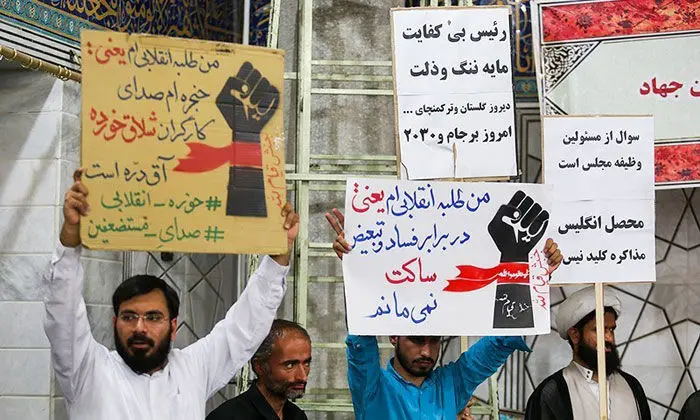 من طلبه انقلابی ام یعنی:
حنجره ام صدای
کارگران شلاق خورده
آق دره است
#حوزه_انقلابی
#صدای_مستضعفین
جنبش قیام لله
رئیس بی کفایت
مایه ننگ وذلت
دیروز گلستان وترکمنچای ...
امروز برجام و ۲۰۳۰
من طلبه انقلابی ام یعنی:
در برابر فساد و تبعیض
ساکت
نمی مانم
جنبش قیام لله
سوال از مسئولین
وظیفه مجلس است
محصل انگلیس
مذاکره کلید نیس
ن جهاد